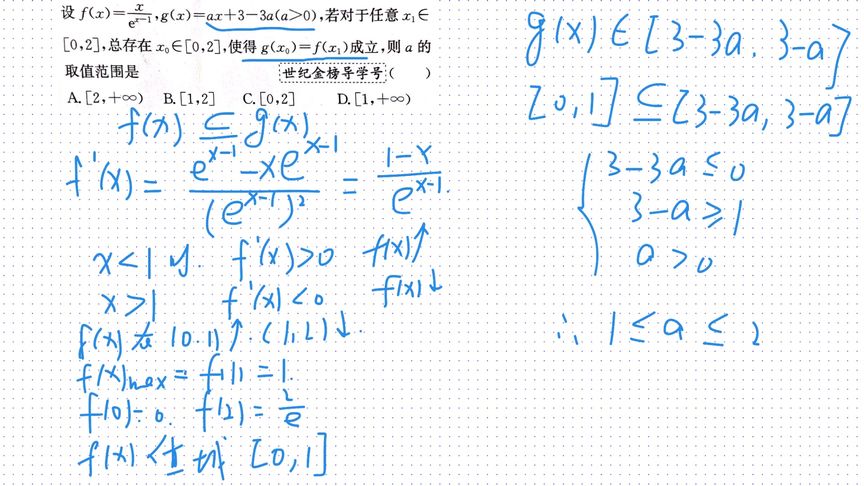 设 f(x)=x/e^(x-1),g(x)=ax+3-3a(a>0),若对于任意 x₁∈
[0,2],总存在 x₀∈[0,2],使得 g(x₀)=f(x₁)成立,则 a 的
取值范围是 世纪金榜导学号( )
A.[2,+∞) B.[1,2] C.[0,2] D.[1,+∞)
f(x) ⊆ g(x)
f'(x) = (e^(x-1) - xe^(x-1))/(e^(x-1))² = (1-x)/e^(x-1).
x<1 时. f'(x)>0 f(x)↑
x>1 f'(x)<0 f(x)↓
f(x) 在 (0.1)↑.(1,2)↓.
f(x)max = f(1) = 1.
f(0)=0. f(2)= 2/e
f(x) 值域 [0,1]
g(x) ∈ [3-3a. 3-a]
[0,1] ⊆ [3-3a, 3-a]
{ 3-3a ≤ 0
3-a ≥ 1
a > 0
∴ 1 ≤ a ≤ 2